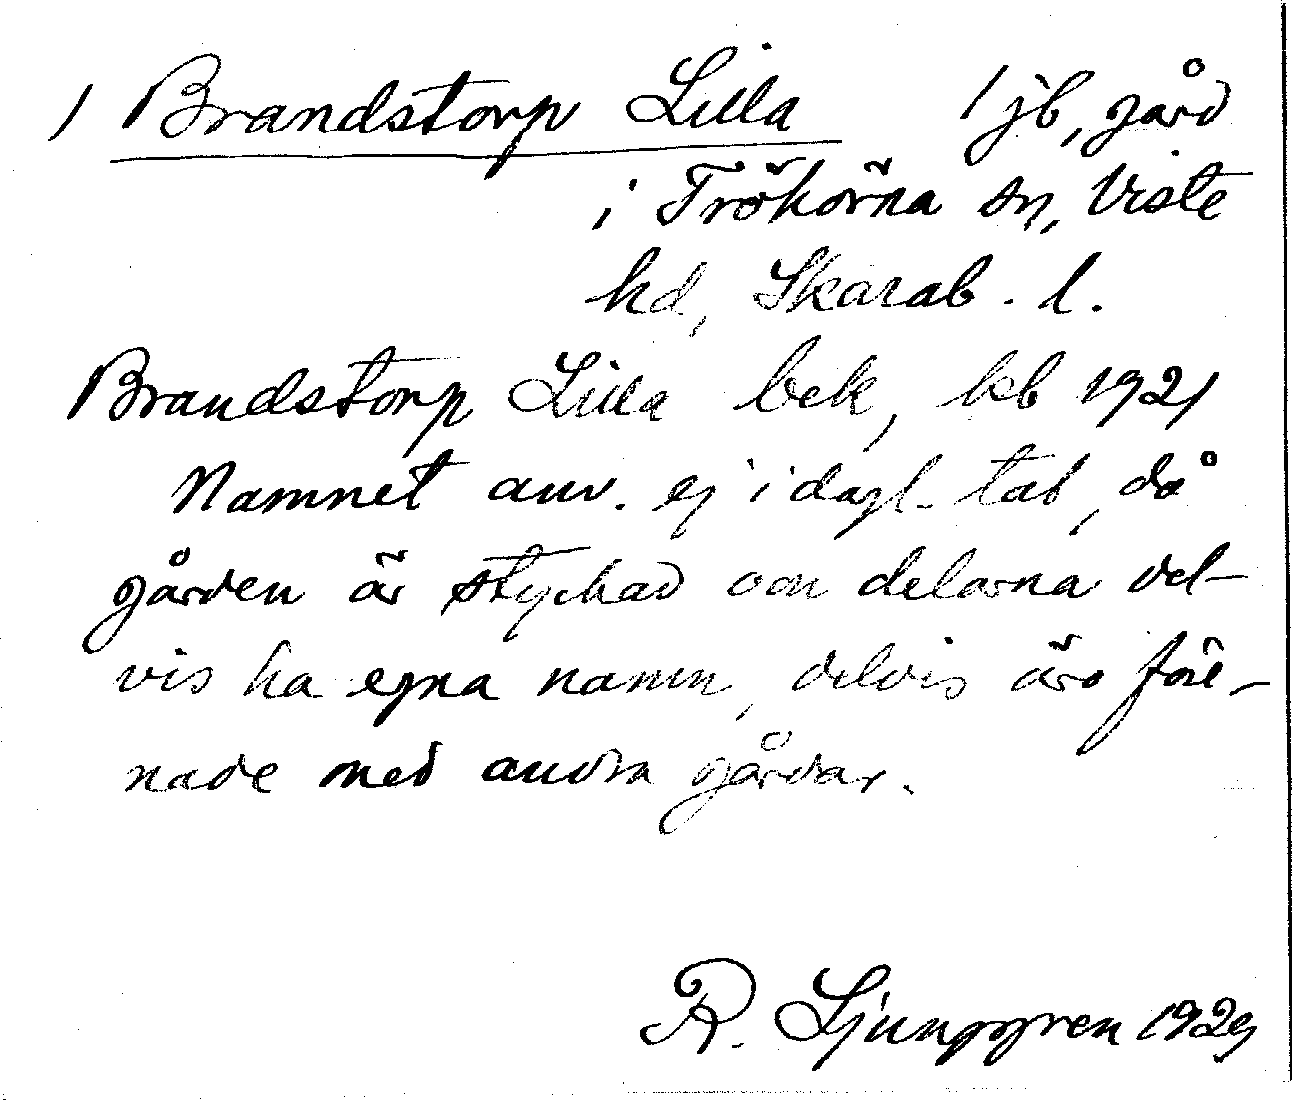 / Brandstorp Lilla / jb, gård
i Trökörna sn, Viste
hd, Skarab. l.
Brandstorp Lilla bek, kb 1921
Namnet anv. ej i dagl. tal, då
gården är styckad och delarna del-
vis ha egna namn, delvis äro före-
nade med andra gårdar.
R. Ljunggren 1929